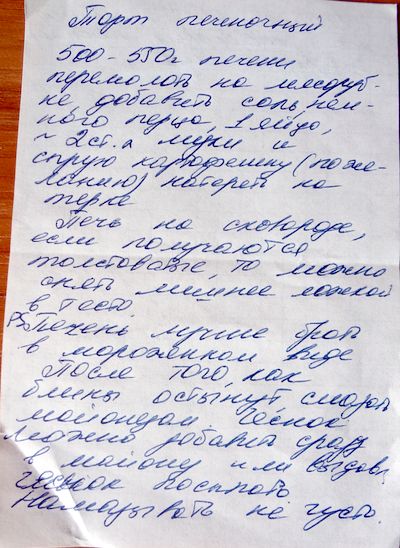 Торт печеночный
500-550г печени
перемолоть на мясруб-
ке, добавить соль, нем-
ного перца, 1 яйцо,
~ 2 ст. л муки и
сырую картофелину (по же-
ланию) натереть на
терке
Печь на сковороде,
если получаются
толстоватые, то можно
снять лишнее ложкой
в тесто.
PS Печень лучше брать
в мороженном виде
После того, как
блины остынут, смазать
майонезом. Чеснок
можно добавить сразу
в майонез или выдавл
чеснок посыпать
Намазывать не густо.